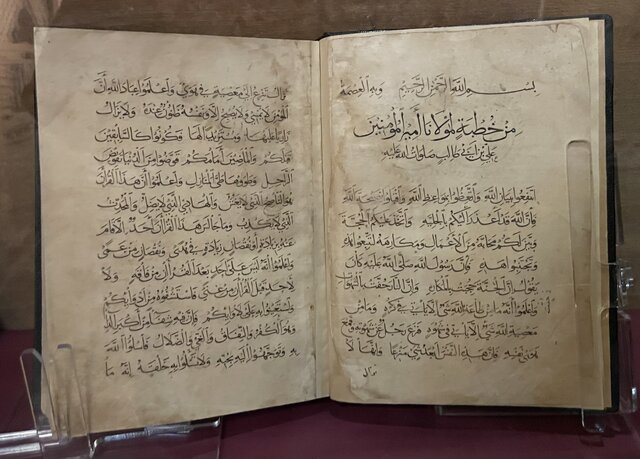 بسم الله الرحمن الرحيم وبه العصمة
من خطبة لمولانا أمير المؤمنين
علي بن أبي طالب صلوات الله عليه
انتفعوا ببيان الله واتعظوا بمواعظ الله واقبلوا نصيحة الله
فإن الله قد أعذر إليكم بالجلية واتخذ عليكم الحجة
وبين لكم محابه من الأعمال ومكارهه منها لتتبعوا هذه
وتجتنبوا هذه فإن رسول الله صلى الله عليه كان
يقول إن الجنة حفت بالمكاره وإن النار حفت بالشهوات
واعلموا أنه ما من طاعة الله شيء إلا يأتي في كره وما من
معصية الله شيء إلا يأتي في شهوة فرحم رجلا نزع عن شهوته وقمع
هوى نفسه فإن هذه النفس أبعد شيء منزعا وإنها لا
تزال
تزال تنزع إلى معصية في هوى واعلموا عباد الله أن
المؤمن لا يمسي ولا يصبح إلا ونفسه ظنون عنده ولا يزال
زاريا عليها ومستزيدا لها فكونوا كالسابقين
قبلكم والماضين أمامكم قوضوا من الدنيا تقويض
الراحل وطووها طي المنازل واعلموا أن هذا القرآن
هو الناصح الذي لا يغش والهادي الذي لا يضل والمحدث
الذي لا يكذب وما جالس هذا القرآن أحد إلا قام
عنه بزيادة أو نقصان زيادة في هدى ونقصان من عمى
واعلموا أنه ليس على أحد بعد القرآن من فاقة ولا
لأحد قبل القرآن من غنى فاستشفوه من أدوائكم
واستعينوا به على لأوائكم فإن فيه شفاء من أكبر الداء
وهو الكفر والنفاق والغي والضلال فاسألوا الله
به وتوجهوا إليه بحبه ولا تسألوا به خلقه إنه ما